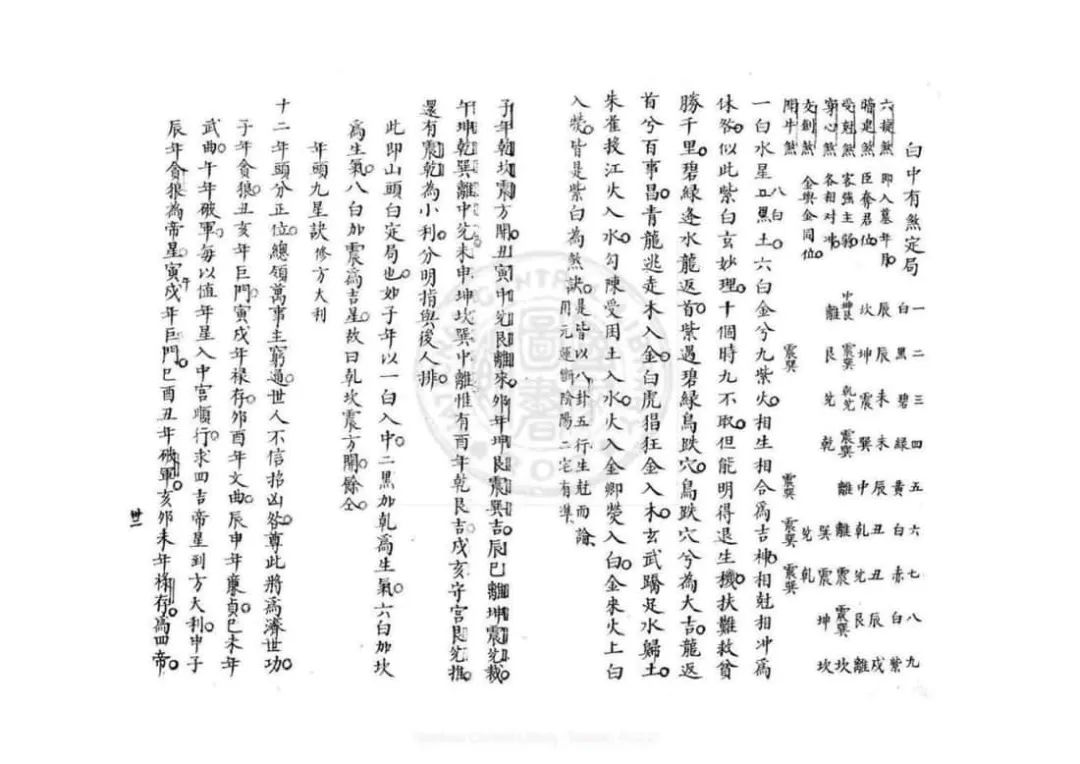 白中有煞定局
一白 二黑 三碧 四綠 五黃 六白 七赤 八白 九紫
六捷煞 即入墓年月 辰 辰 未 未 辰 丑 丑 辰 戌
暗建煞 臣奪君位 坎 坤 震 巽 中 乾 兌 艮 離
受尅煞 客強主弱 中坤艮 震巽 乾兌 震巽 離 離 震 震巽 坎
穿心煞 各相對冲 離 艮 兌 乾 巽 震 坤 坎
交劍煞 金與金同位 兌 乾
鬥牛煞 八白 震巽 震巽 震巽 震巽
一白水星二黑土六白金兮九紫火相生相合爲吉神相尅相冲爲
休咎似此紫白玄妙理十個時九不取但能明得退生機扶難救貧
勝千里碧綠逢水龍返首紫遇碧綠鳥跌穴鳥跌穴兮為大吉龍返
首兮百事昌青龍逃走木入金白虎猖狂金入木玄武躋足水歸土
朱雀投江火入水勾陳受困土入水火入金鄉熒入白金來火上白
入熒皆是紫白為煞訣是皆以八卦五行生尅而論用元運斷陰陽二宅有準
子年乾坎震方開丑寅中兌艮離來卯年坤艮震巽吉辰巳離坤震兌裁
午坤乾巽離中兌未申坤坎巽中離惟有酉年乾艮吉戌亥守宮艮兌推
還有震乾為小利分明指與後人排
此即山頭白定局也如子年以一白入中二黑加乾爲生氣六白加坎
爲生氣八白加震爲吉星故曰乾坎震方開餘仝
年頭九星訣修方大利
十二年頭分正位總領萬事主窮通世人不信招凶咎尊此將爲濟世功
子年貪狼丑亥年巨門寅戌年祿存卯酉年文曲辰申年廉貞巳未年
武曲午年破軍每以值年星入中宮順行求四吉帝星到方大利申子
辰年貪狼為帝星寅午戌年巨門巳酉丑年破軍亥卯未年祿存爲四帝
卅二